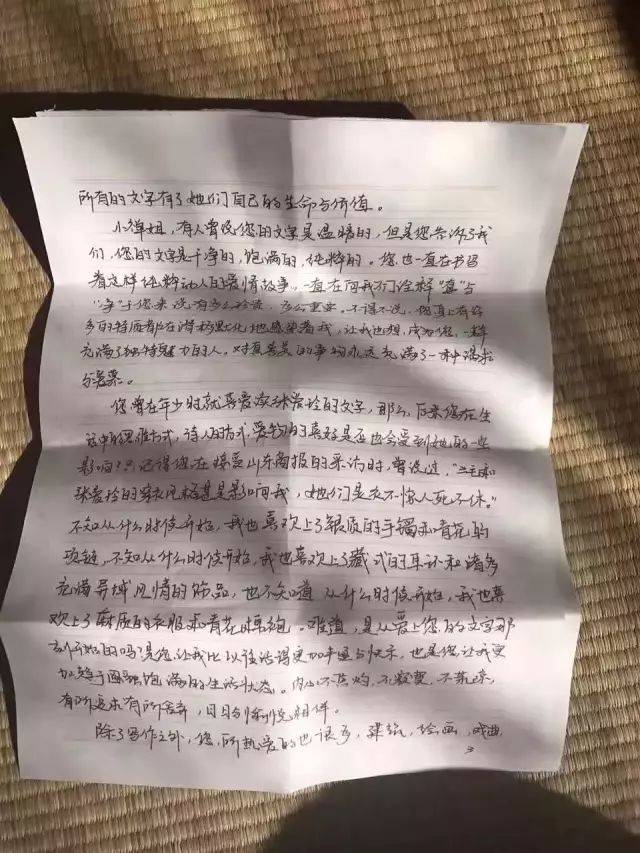 所有的文字有了她们自己的生命与价值。
小禅姐，有人曾说您的文字是温情的，但是您告诉了我
们，您的文字是干净的，饱满的，纯粹的。您也一直在书写
着这样纯粹动人的爱情故事，一直在向我们诠释“真”与
“净”于您来说有多么珍贵，多么重要。不得不说，您身上有好
多的特质都在潜移默化地感染着我，让我也想，成为您一样
充满了独特魅力的人。对真善美的事物永远充满了一种渴求
与要
您曾在年少时就喜爱读张爱玲的文字，那么，后来您在生
活中的思维方式，待人的方式，爱物的喜好是否也会受到她的一些
影响？记得您在接受山东商报的采访时，曾说过，“三毛和
张爱玲的穿衣风格真是影响我，她们是衣不惊人死不休。”
不知从什么时候开始，我也喜欢上了银质的手镯和青花的
项链，不知从什么时候开始，我也喜欢上了藏式的耳环和诸多
充满异域风情的饰品，也不知道从什么时候开始，我也喜
欢上了麻质的衣服和青花棉袍。难道，是从爱上您的文字那
刻开始的吗？是您让我比以往活得更加丰盛与快乐，也是您让我更
加趋于圆融饱满的生活状态。内心不焦灼，不寂寞，不荒凉，
有所要求有所舍弃，日日与愉悦相伴。
除了写作之外，您所热爱的也很多，建筑，绘画，戏曲，
3